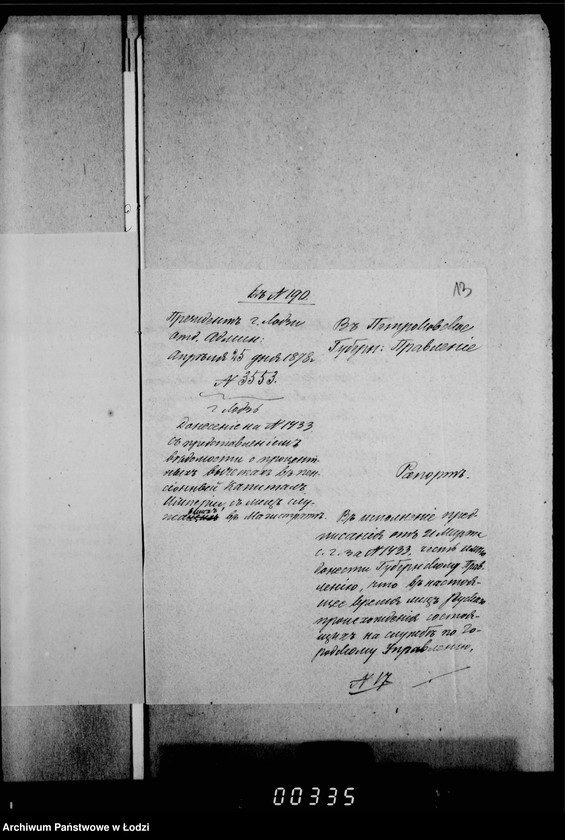 Къ № 190.
13
Президентъ г. Лодзи
отд. Админ:
Апрѣля 25 дня 1878 г.
№ 3553.
г. Лодзь
Донесеніе на № 1433
съ представленіемъ
вѣдомости о процент-
ныхъ вычетахъ въ пен-
сіонный капиталъ
Имперіи, съ лицъ слу-
въ Магистратѣ.
Въ Петроковское
Губерн: Правленіе
Рапортъ.
Въ исполненіе пред-
писанія отъ 21 Марта
с. г. за № 1433, честь имѣю
донести Губернскому Прав-
ленію, что въ настоя-
щее время лицъ Русскаго
происхожденія состоя-
щихъ на службѣ по Го-
родскому Управленію,
№ 17
00335
Archiwum Państwowe w Łodzi